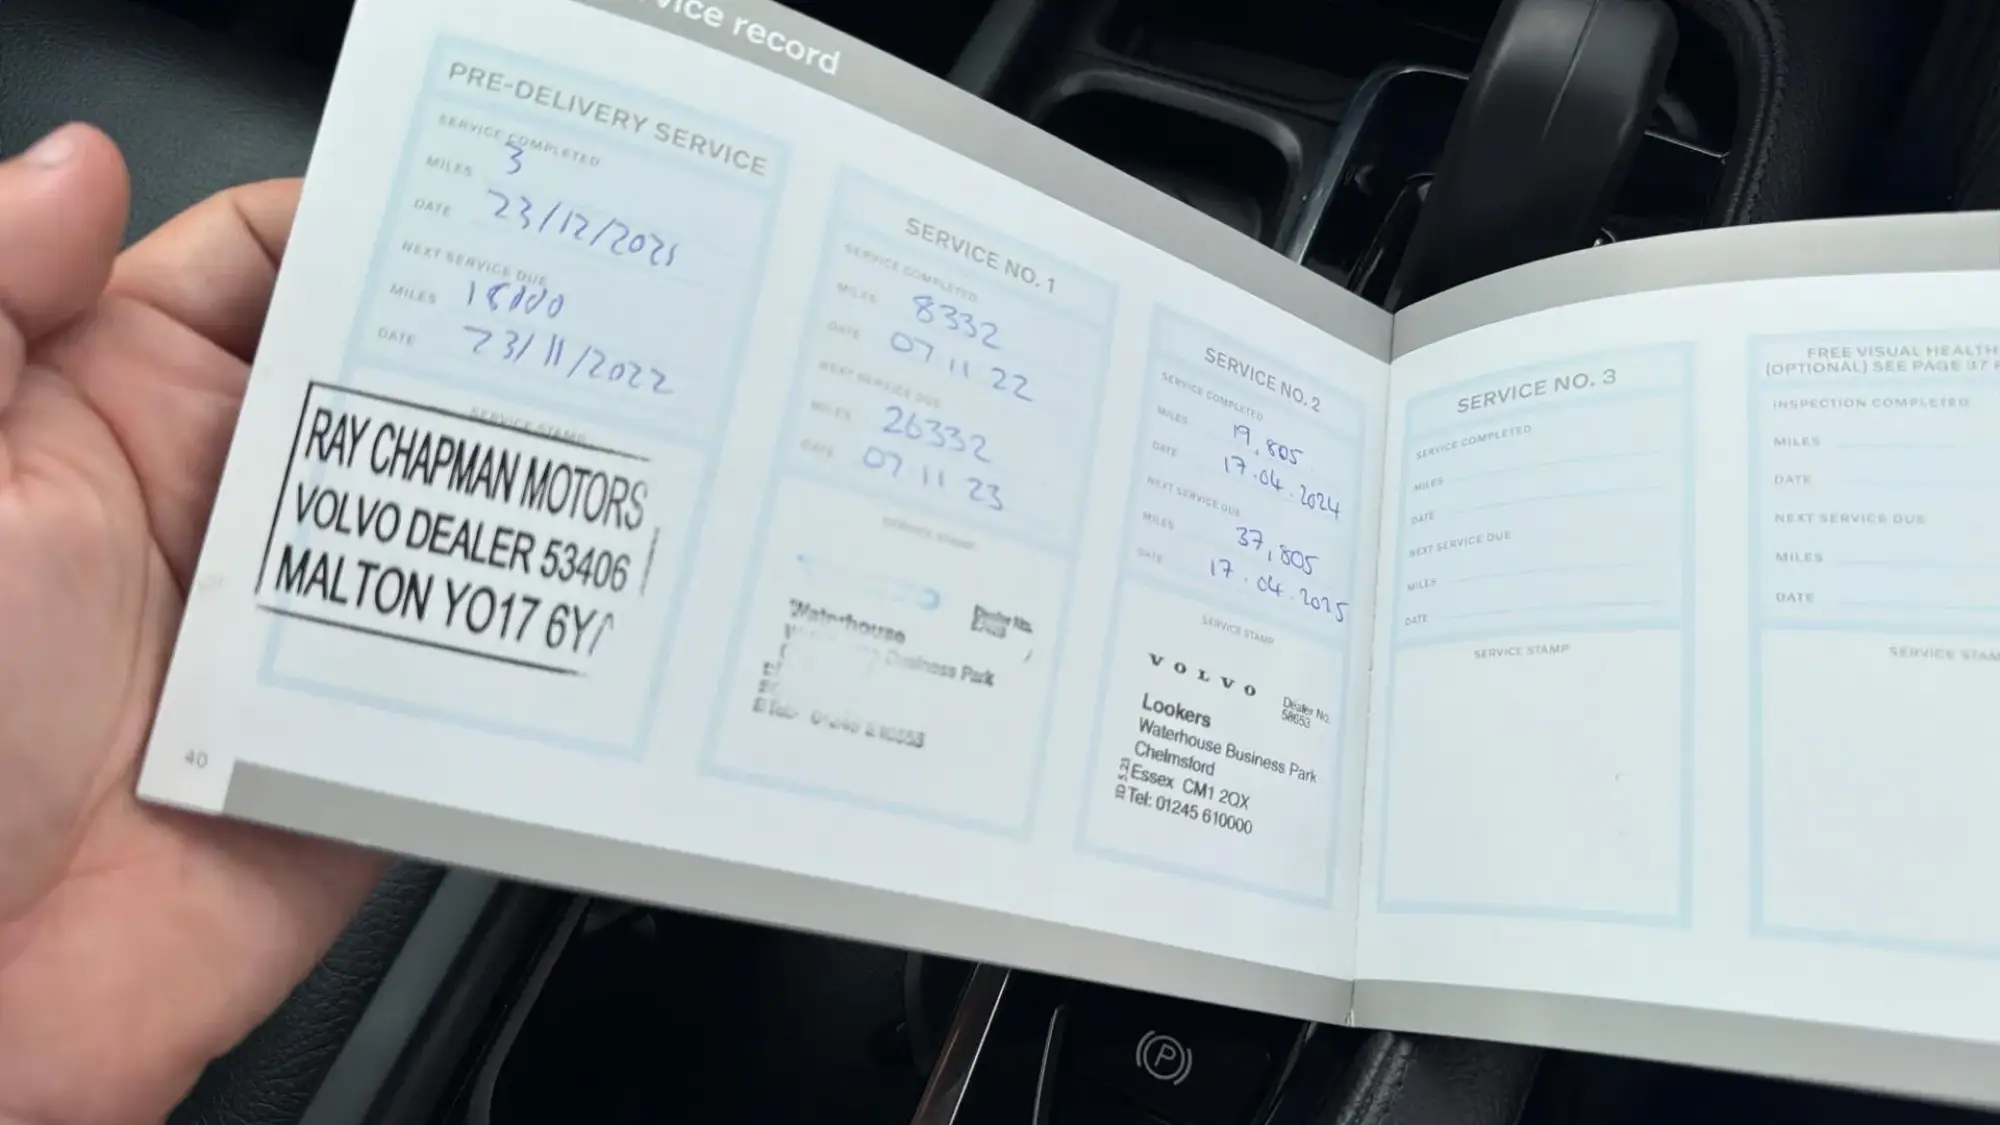 service record
PRE-DELIVERY SERVICE
SERVICE COMPLETED
MILES 3
DATE 23/12/2021
NEXT SERVICE DUE
MILES 18000
DATE 23/11/2022
SERVICE STAMP
RAY CHAPMAN MOTORS
VOLVO DEALER 53406
MALTON YO17 6Y
40
SERVICE NO. 1
SERVICE COMPLETED
MILES 8332
DATE 07 11 22
NEXT SERVICE DUE
MILES 26332
DATE 07 11 23
SERVICE STAMP
Dealer No.
Waterhouse
Business Park
SERVICE NO. 2
SERVICE COMPLETED
MILES 19,805
DATE 17.04.2024
NEXT SERVICE DUE
MILES 37,805
DATE 17.04.2025
SERVICE STAMP
VOLVO
Dealer No.
58653
Lookers
Waterhouse Business Park
Chelmsford
Essex CM1 2QX
Tel: 01245 610000
SERVICE NO. 3
SERVICE COMPLETED
MILES
DATE
NEXT SERVICE DUE
MILES
DATE
SERVICE STAMP
FREE VISUAL HEALTH
(OPTIONAL) SEE PAGE 37
INSPECTION COMPLETED
MILES
DATE
NEXT SERVICE DUE
MILES
DATE
SERVICE STAM
P